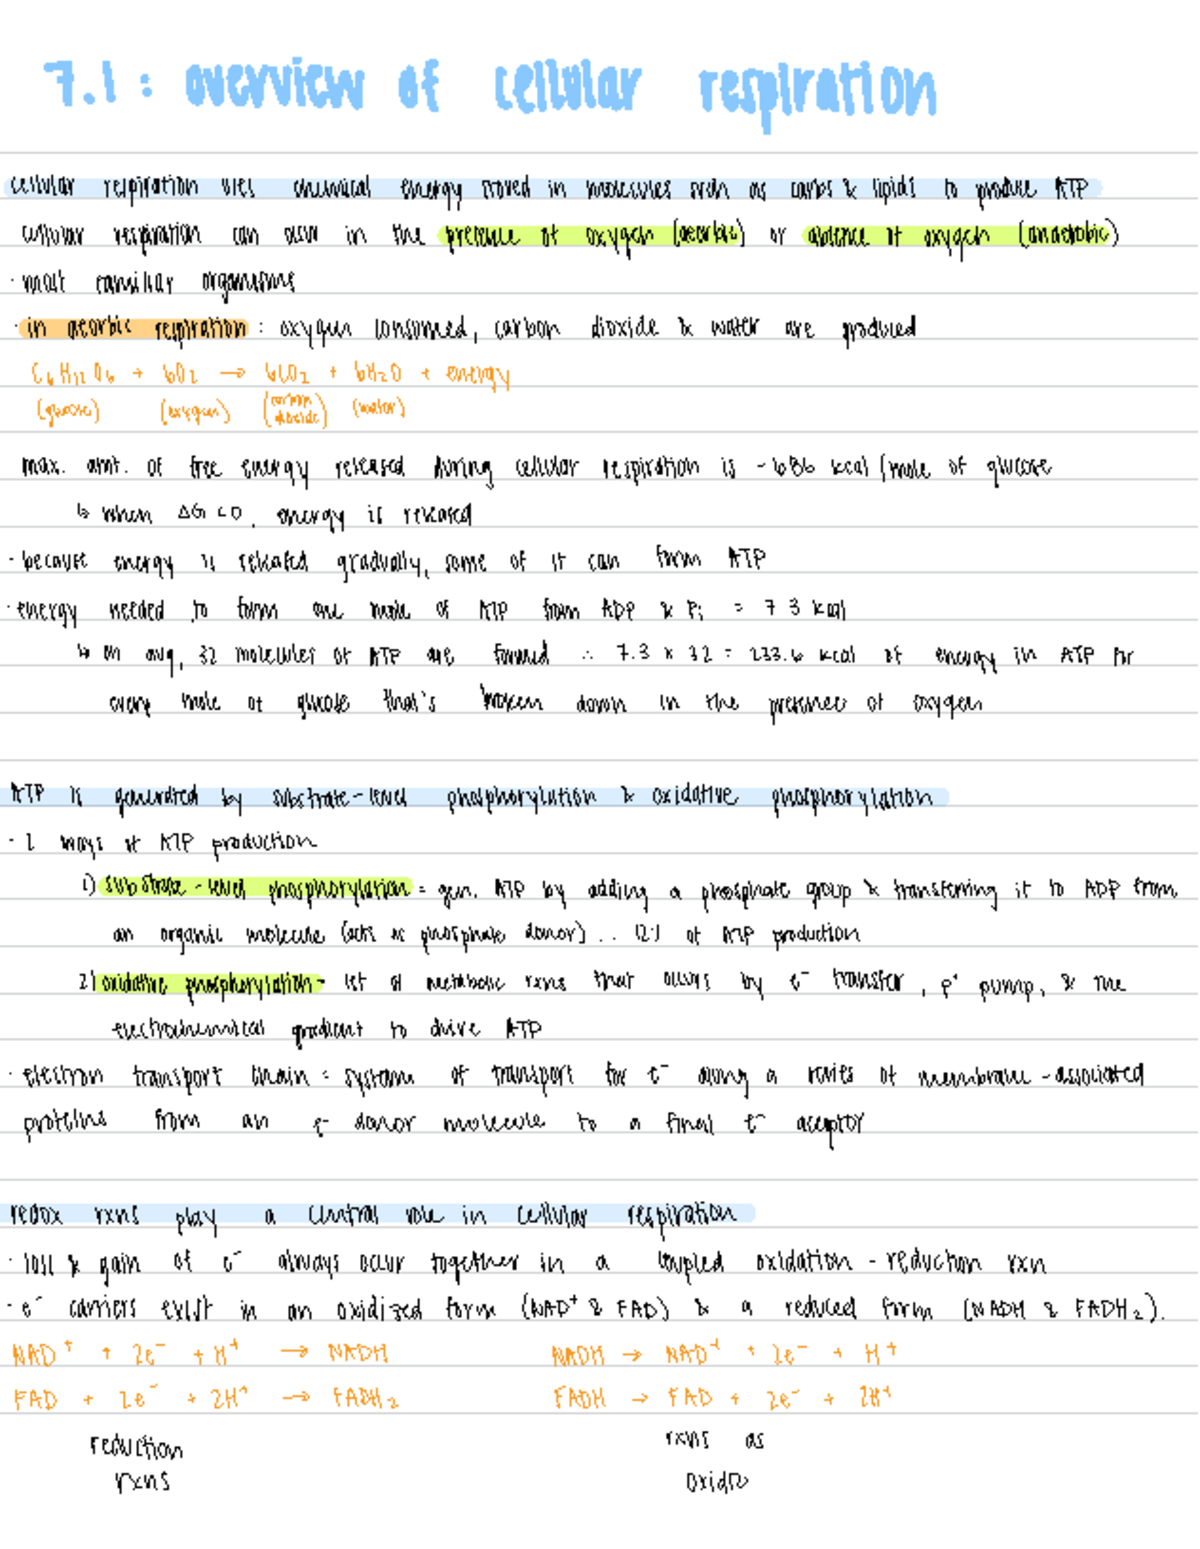 7.1 : overview of cellular respiration
cellular respiration uses chemical energy stored in molecules such as carbs & lipids to produce ATP
cellular respiration can occur in the presence of oxygen (aeorbic) or absence of oxygen (anaerobic)
· most familiar organisms
· in aeorbic respiration : oxygen consumed, carbon dioxide & water are produced
C6H12O6 + 6O2 → 6CO2 + 6H2O + energy
(glucose) (oxygen) (carbon dioxide) (water)
max. amt. of free energy released during cellular respiration is -686 kcal / mole of glucose
↳ when ΔG < 0, energy is released
· because energy is released gradually, some of it can form ATP
· energy needed to form one mole of ATP from ADP & Pi = 7.3 kcal
↳ on avg, 32 molecules of ATP are formed ∴ 7.3 x 32 = 233.6 kcal of energy in ATP for
every mole of glucose that's broken down in the presence of oxygen
ATP is generated by substrate-level phosphorylation & oxidative phosphorylation
· 2 ways of ATP production
1) substrate-level phosphorylation = gen. ATP by adding a phosphate group & transferring it to ADP from
an organic molecule (acts as phosphate donor) .. 12% of ATP production
2) oxidative phosphorylation - set of metabolic rxns that occurs by e⁻ transfer, p⁺ pump, & the
electrochemical gradient to drive ATP
· electron transport chain = systems of transport for e⁻ along a series of membrane-associated
proteins from an e⁻ donor molecule to a final e⁻ aceptor
redox rxns play a central role in cellular respiration
· loss & gain of e⁻ always occur together in a coupled oxidation-reduction rxn
· e⁻ carriers exist in an oxidized form (NAD⁺ & FAD) & a reduced form (NADH & FADH2).
NAD⁺ + 2e⁻ + H⁺ → NADH NADH → NAD⁺ + 2e⁻ + H⁺
FAD + 2e⁻ + 2H⁺ → FADH2 FADH → FAD + 2e⁻ + 2H⁺
reduction rxns as
rxns